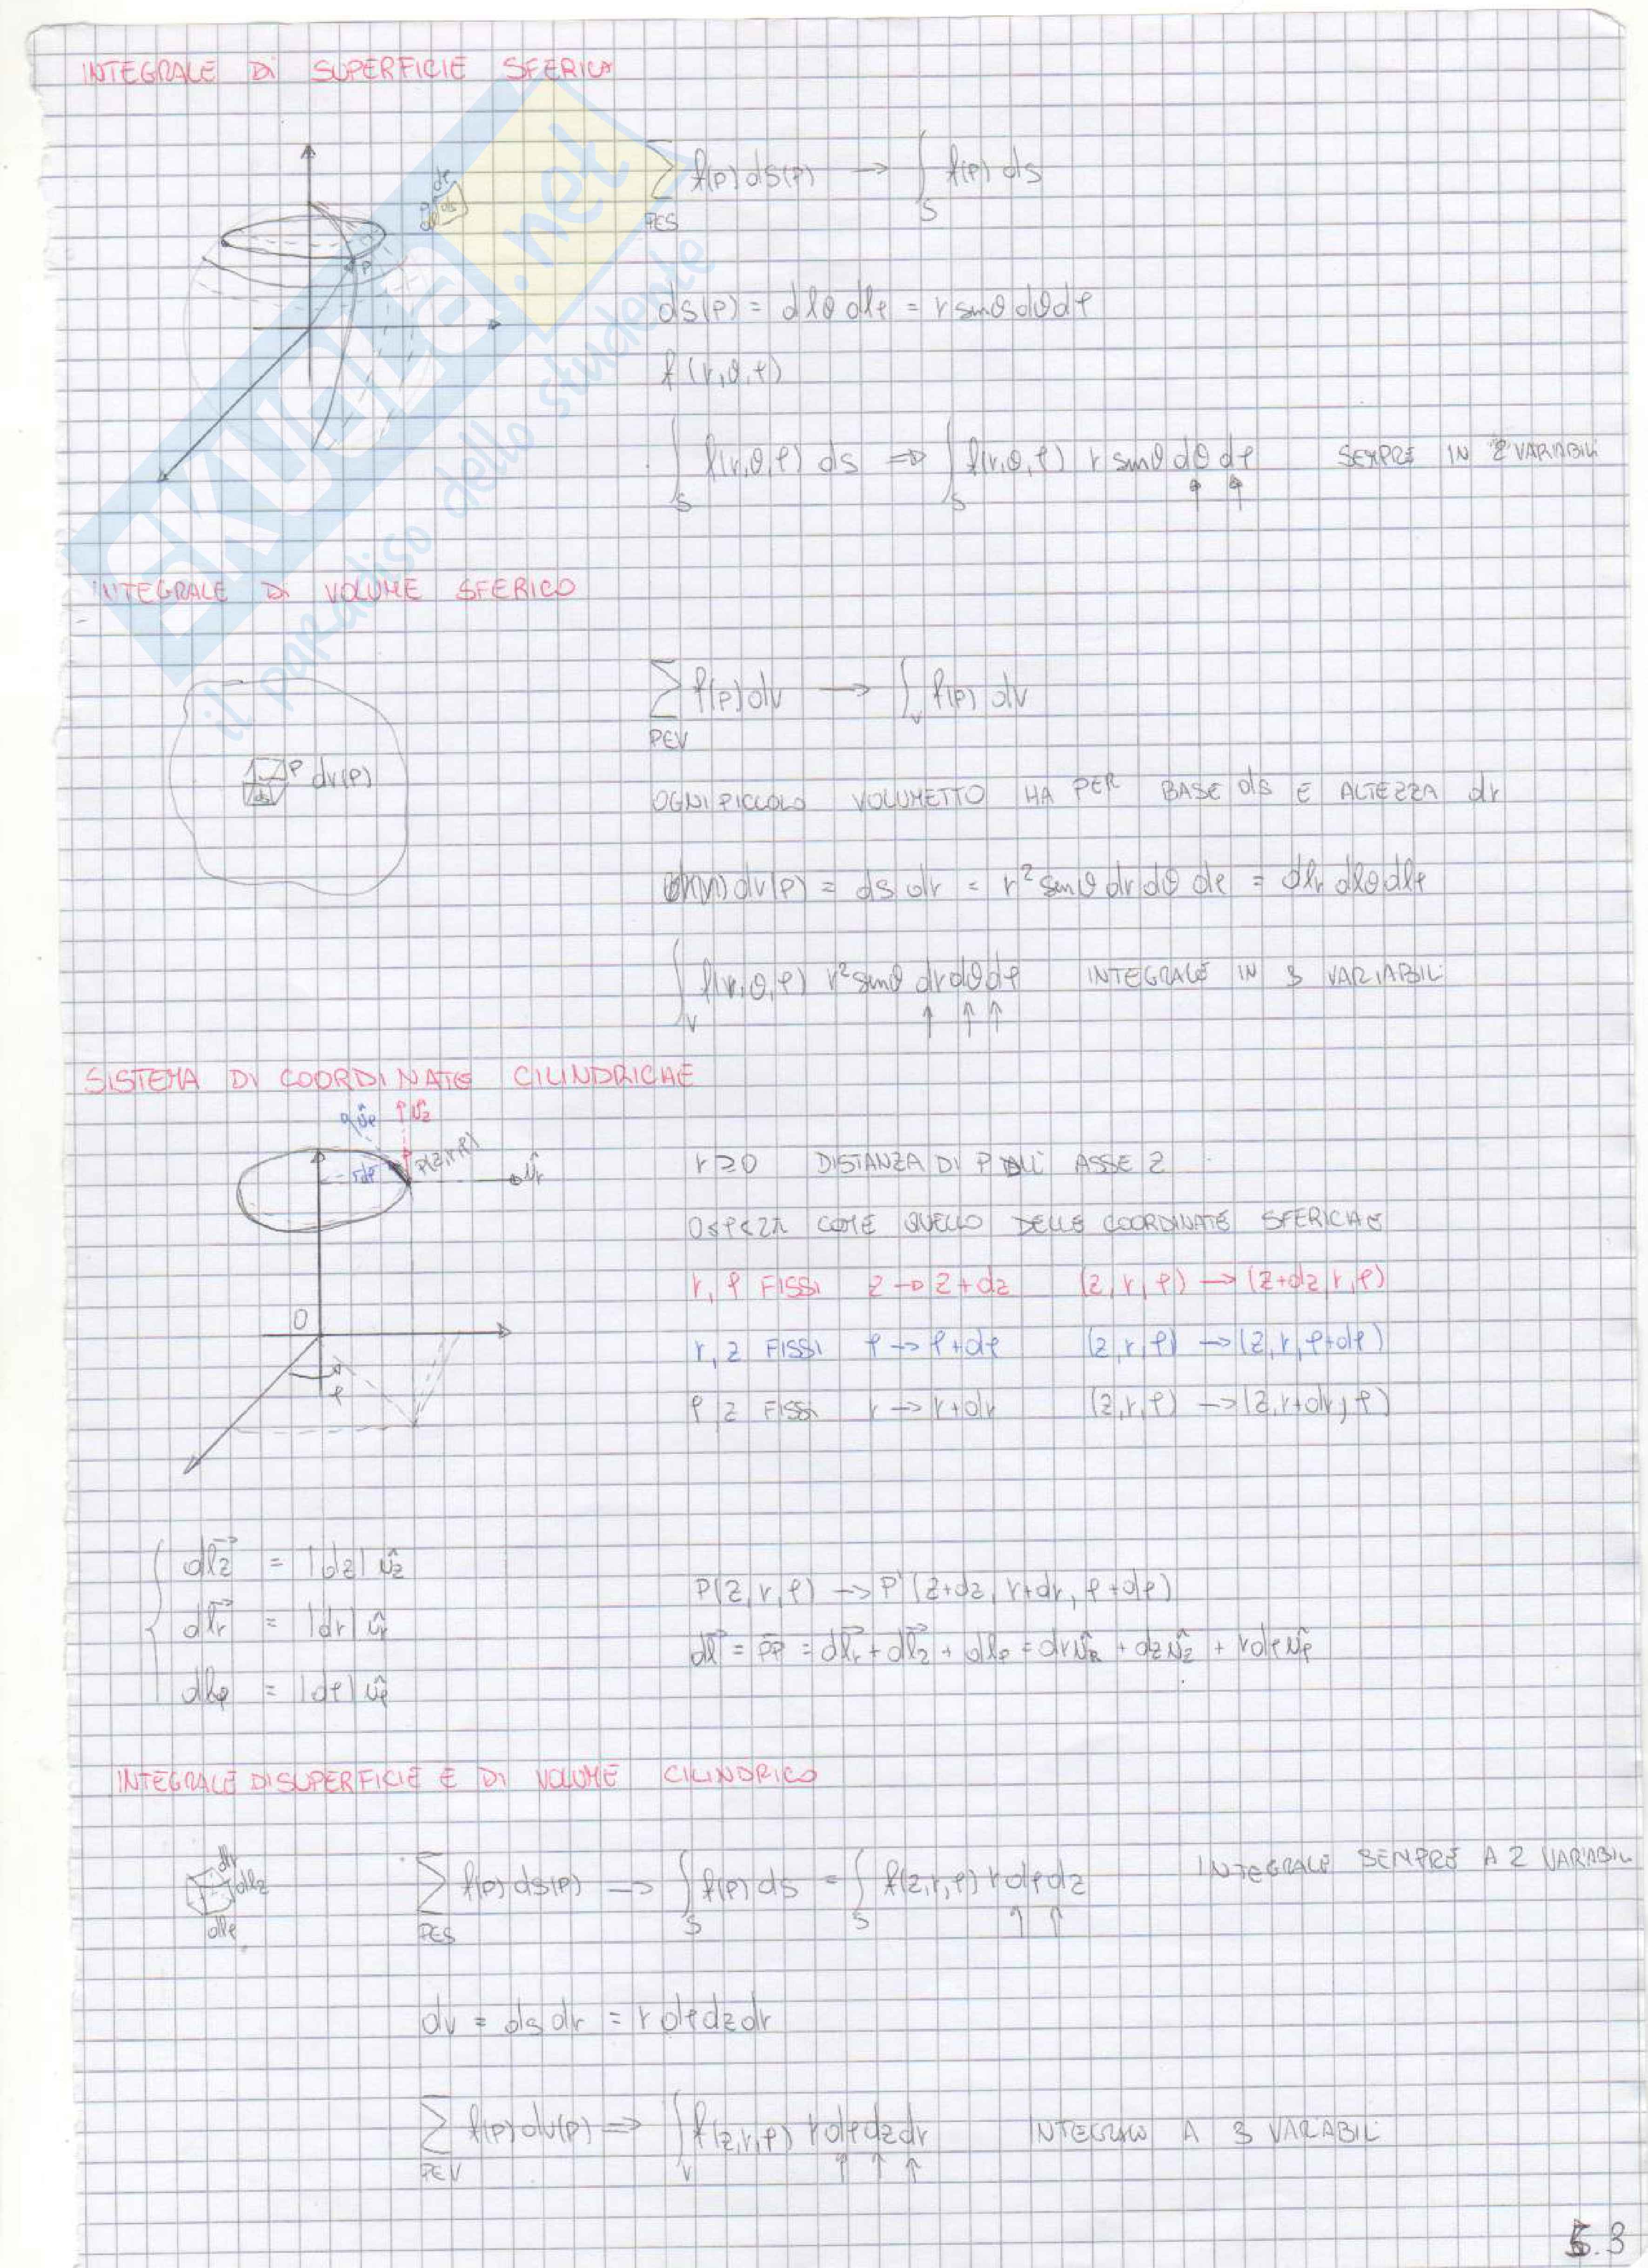 INTEGRALE DI SUPERFICIE SFERICA
∑ f(P) ds(P) → ∫ f(P) ds
P∈S S
dφ
dlθ ds
P
ds(P) = dlθ dlφ = r sinθ dθ dφ
f(r,θ,φ)
∫ f(r,θ,φ) ds ⇒ ∫ f(r,θ,φ) r sinθ dθ dφ SEMPRE IN 2 VARIABILI
S S
SKUOLA.net
il paradiso dello studente
INTEGRALE DI VOLUME SFERICO
∑ f(P) dv → ∫ f(P) dv
P∈V V
P dv(P)
ds
OGNI PICCOLO VOLUMETTO HA PER BASE ds E ALTEZZA dr
dv(P) = ds dr = r² sinθ dr dθ dφ = dlr dlθ dlφ
∫ f(r,θ,φ) r² sinθ dr dθ dφ INTEGRALE IN 3 VARIABILI
V
SISTEMA DI COORDINATE CILINDRICHE
ûφ ûz
P(z,r,φ)
rdφ ûr
r≥0 DISTANZA DI P DALL' ASSE Z
0≤φ<2π COME QUELLO DELLE COORDINATE SFERICHE
r, φ FISSI z → z+dz (z,r,φ) → (z+dz,r,φ)
O
r, z FISSI φ → φ+dφ (z,r,φ) → (z,r,φ+dφ)
φ
φ, z FISSI r → r+dr (z,r,φ) → (z,r+dr,φ)
dlz = |dz| ûz
P(z,r,φ) → P'(z+dz, r+dr, φ+dφ)
dlr = |dr| ûr
dl = PP' = dlr + dlz + dlφ = dr ûr + dz ûz + rdφ ûφ
dlφ = |dφ| ûφ
INTEGRALE DI SUPERFICIE E DI VOLUME CILINDRICO
dlr
dlz
dlφ
∑ f(P) ds(P) → ∫ f(P) ds = ∫ f(z,r,φ) r dφ dz INTEGRALE SEMPRE A 2 VARIABILI
P∈S S S
dv = ds dr = r dφ dz dr
∑ f(P) dv(P) ⇒ ∫ f(z,r,φ) r dφ dz dr INTEGRALE A 3 VARIABILI
P∈V V
5.3